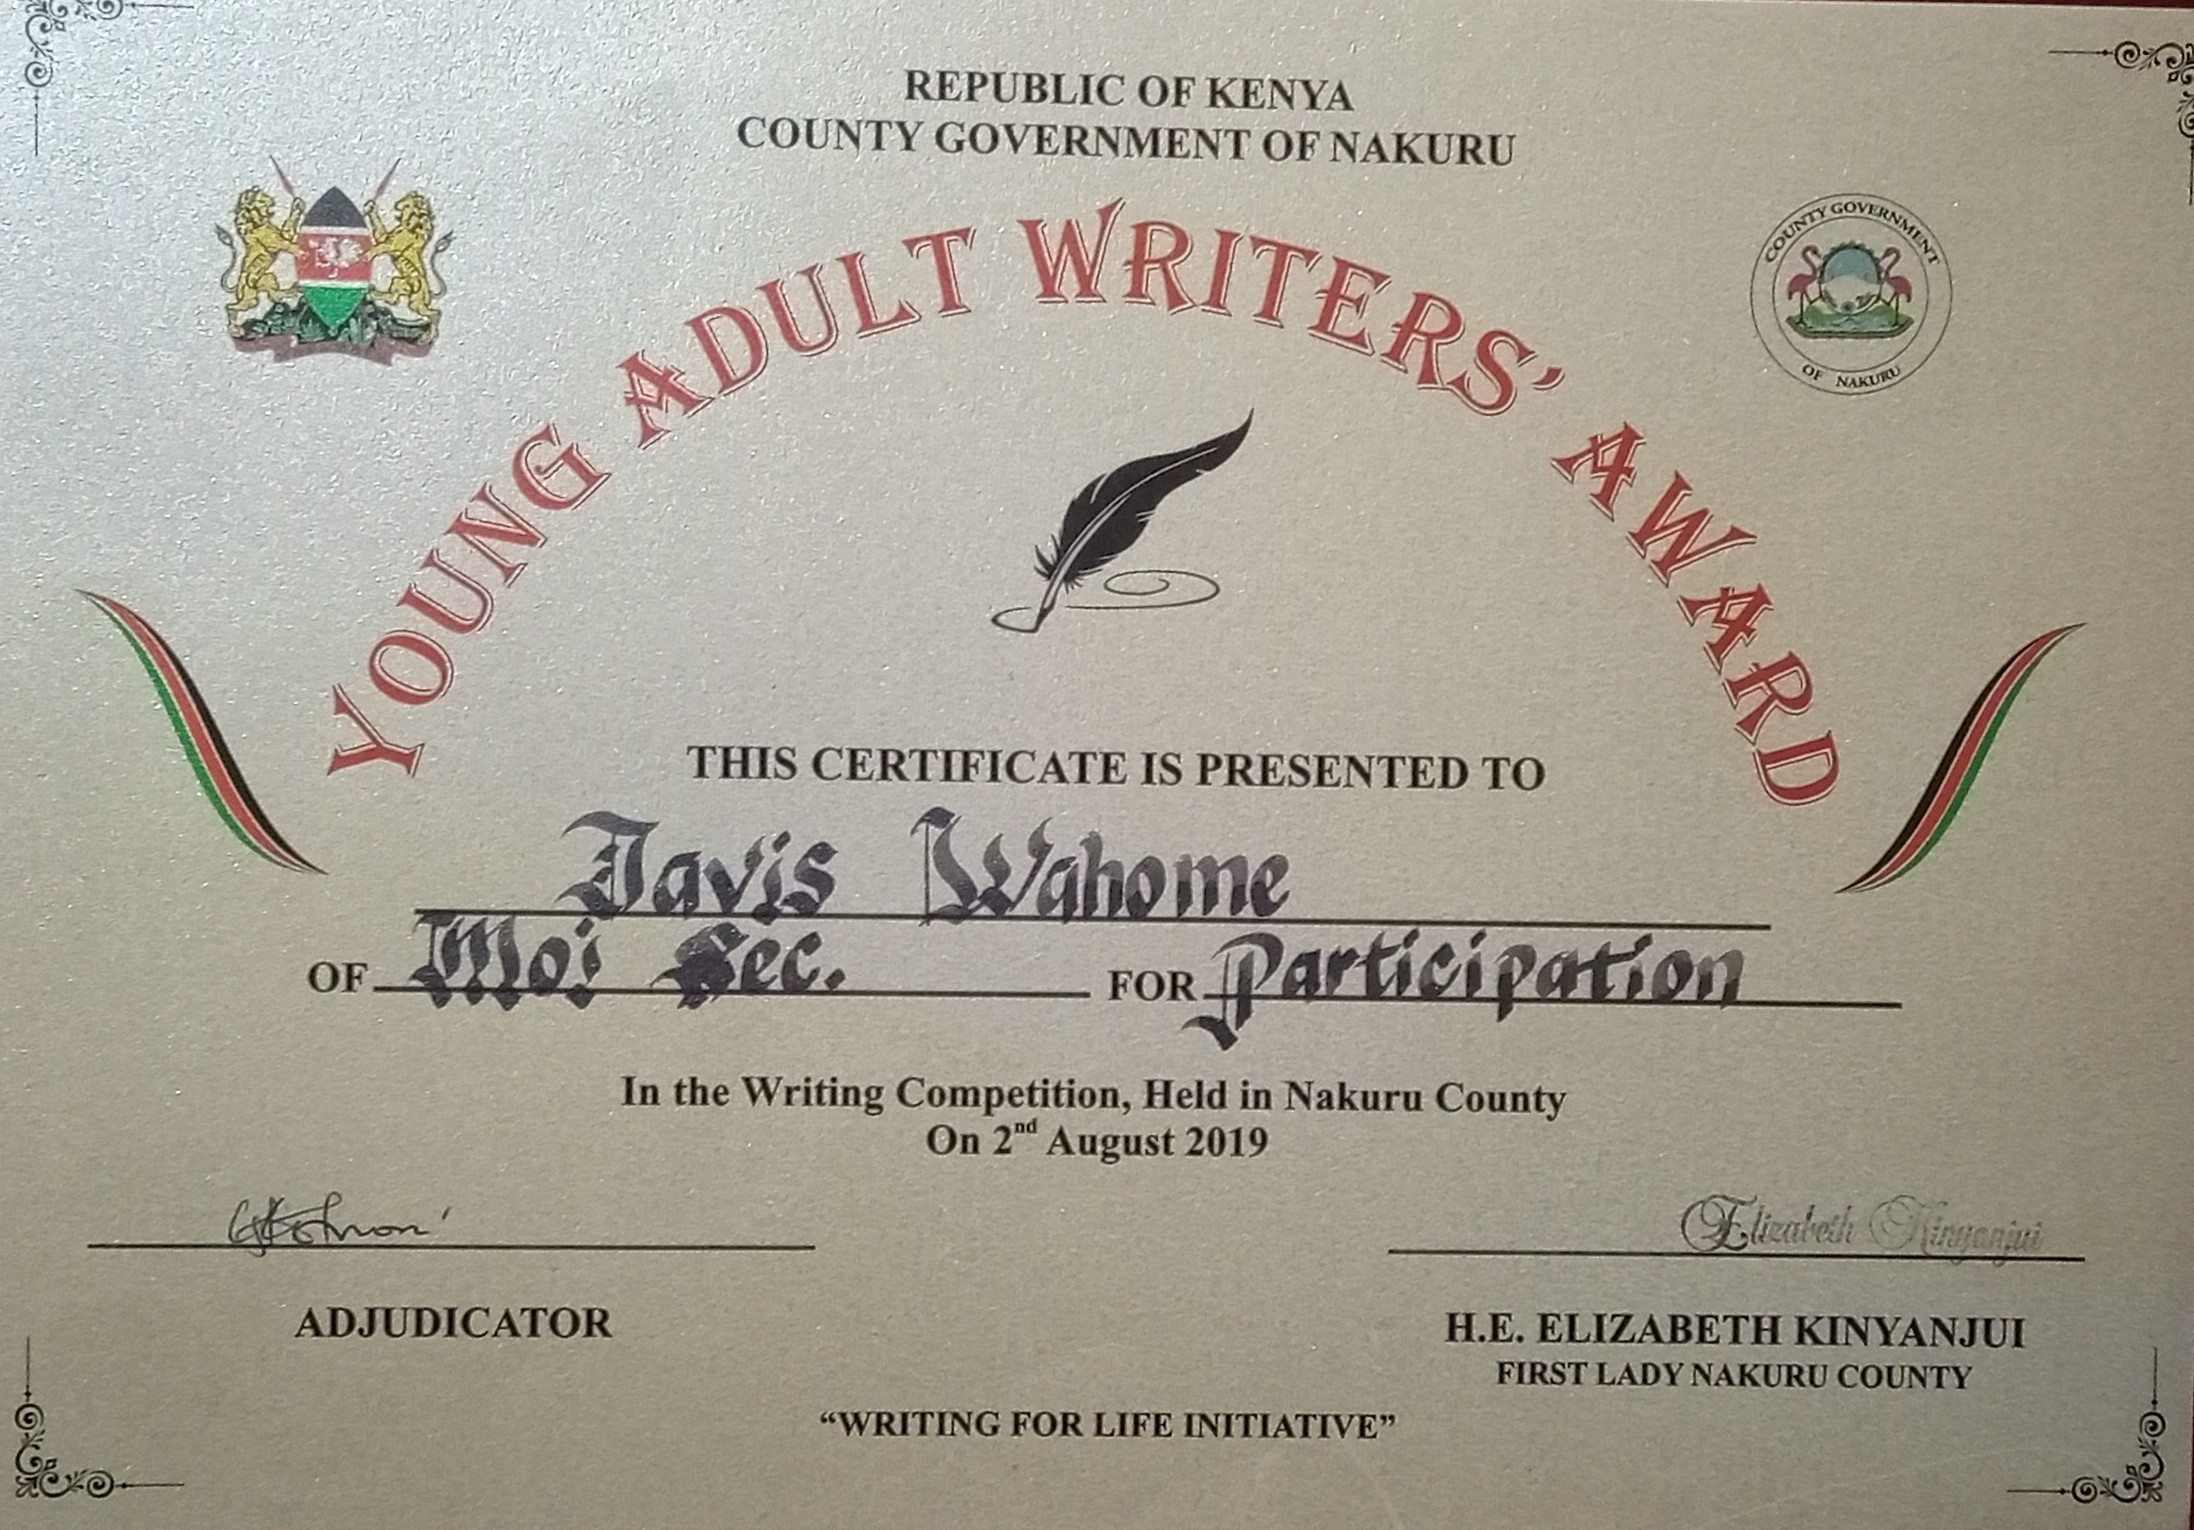 REPUBLIC OF KENYA
COUNTY GOVERNMENT OF NAKURU
COUNTY GOVERNMENT
OF NAKURU
YOUNG ADULT WRITERS' AWARD
THIS CERTIFICATE IS PRESENTED TO
Davis Wahome
OF Moi Sec. FOR Participation
In the Writing Competition, Held in Nakuru County
On 2nd August 2019
Elizabeth Kinyanjui
ADJUDICATOR
H.E. ELIZABETH KINYANJUI
FIRST LADY NAKURU COUNTY
“WRITING FOR LIFE INITIATIVE”